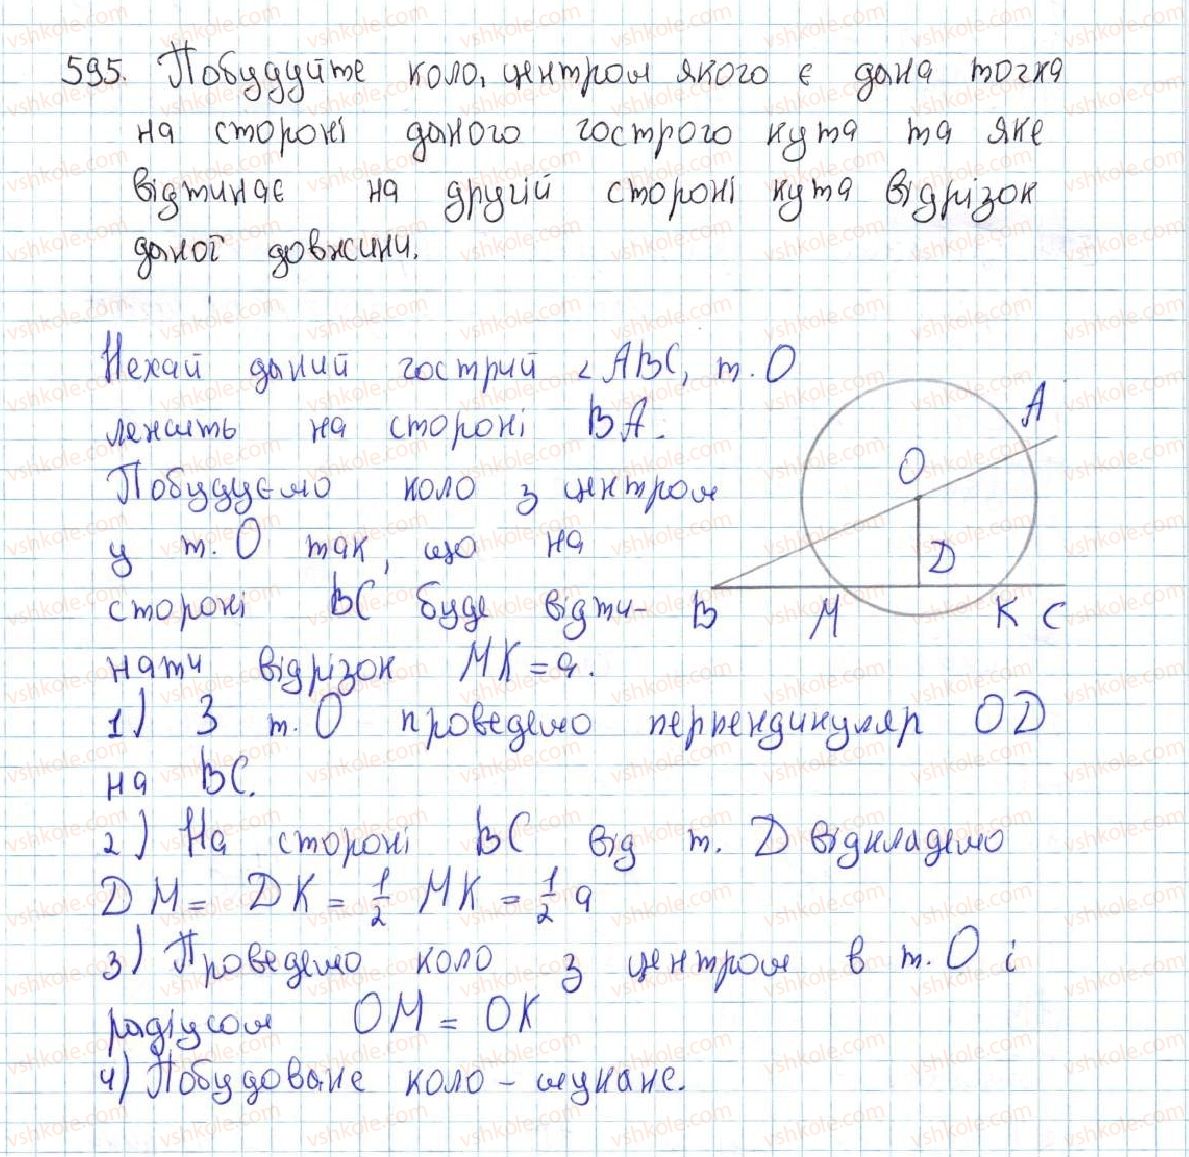 595. Побудуйте коло, центром якого є дана точка
на стороні даного гострого кута та яке
відтинає на другій стороні кута відрізок
даної довжини.
Нехай даний гострий < ABC, т. O
лежить на стороні BA.
Побудуємо коло з центром
у т. O так, що на
стороні BC буде відти-
нати відрізок MK = a.
A
O
D
B M K C
1) З т. O проведемо перпендикуляр OD
на BC.
2) На стороні BC від т. D відкладемо
DM = DK = 1/2 MK = 1/2 a
3) Проведемо коло з центром в т. O і
радіусом OM = OK
4) Побудоване коло - шукане.
vshkole.com